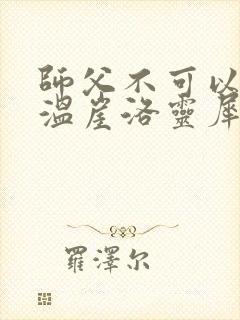 師父不可以
溫崖洛靈犀
羅澤尔